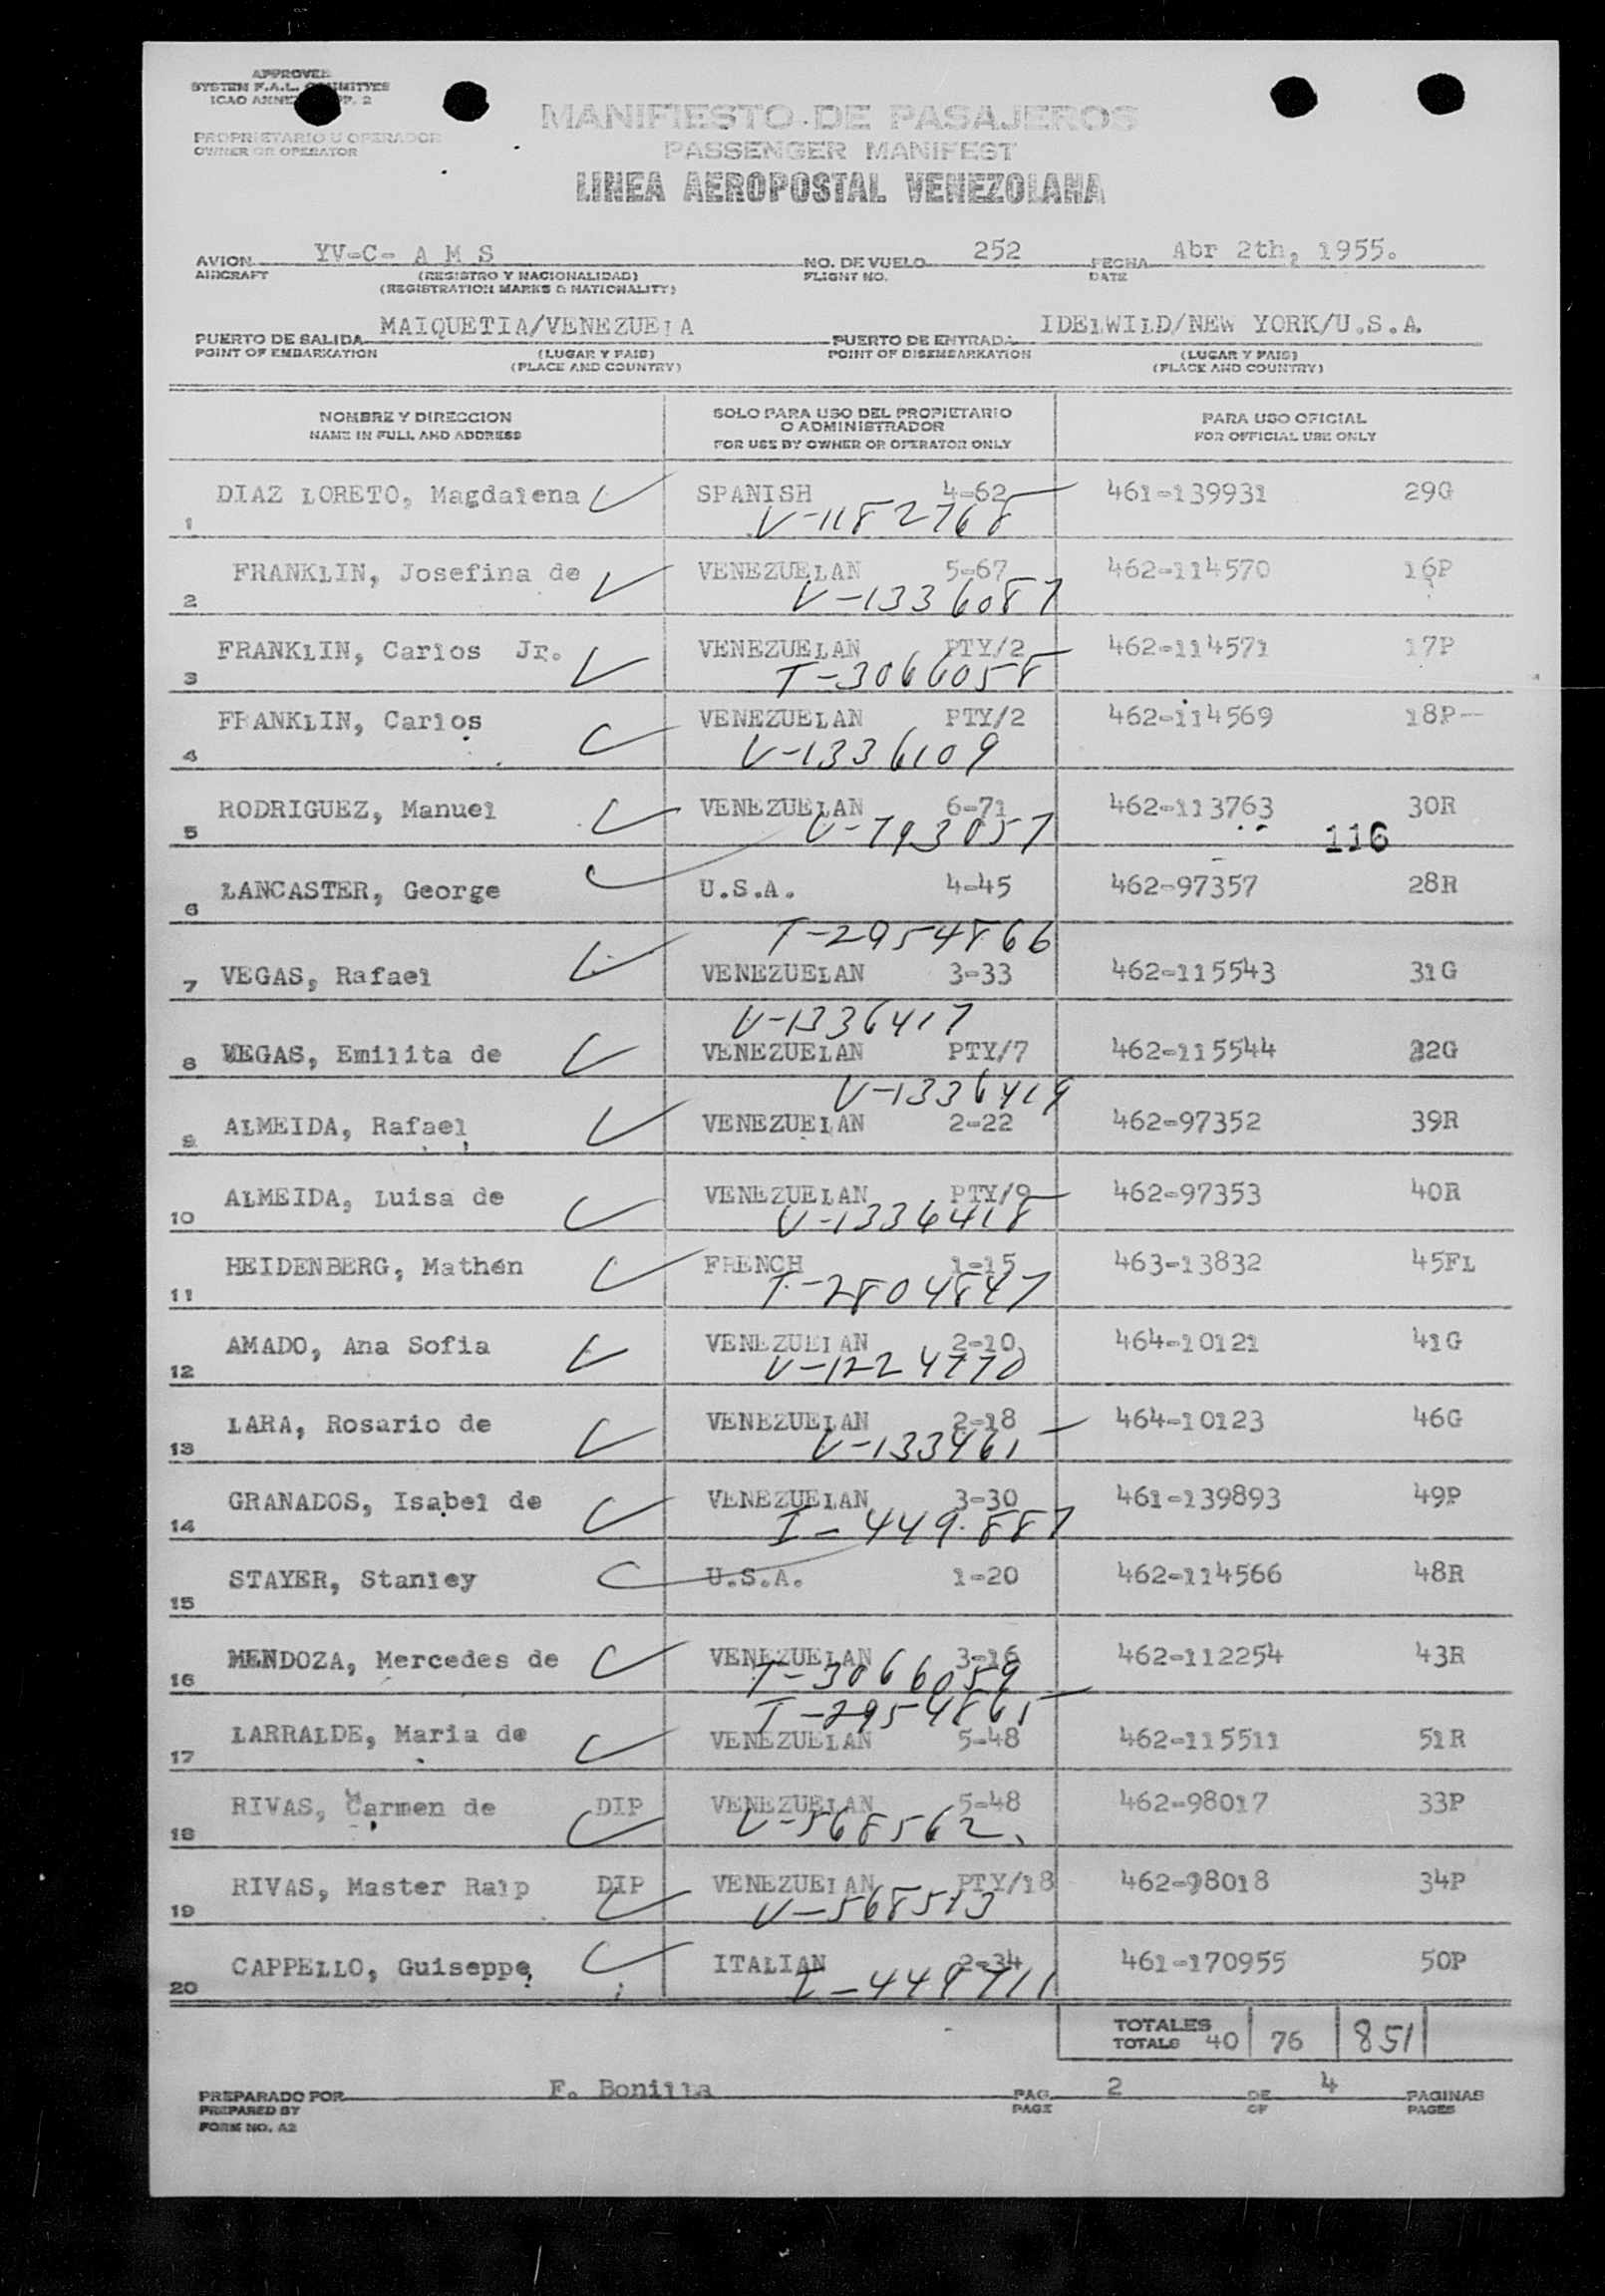 APPROVED
SYSTEM F.A.L. COMMITTEE
ICAO ANNEX PP. 2
PROPRIETARIO U OPERADOR
OWNER OR OPERATOR
MANIFIESTO DE PASAJEROS
PASSENGER MANIFEST
LINEA AEROPOSTAL VENEZOLANA
AVION YV-C- A M S NO. DE VUELO 252 FECHA Abr 2th, 1955.
AIRCRAFT (REGISTRO Y NACIONALIDAD) FLIGHT NO. DATE
(REGISTRATION MARKS & NATIONALITY)
PUERTO DE SALIDA MAIQUETIA/VENEZUELA PUERTO DE ENTRADA IDELWILD/NEW YORK/U.S.A.
POINT OF EMBARKATION (LUGAR Y PAIS) POINT OF DISEMBARKATION (LUGAR Y PAIS)
(PLACE AND COUNTRY) (PLACE AND COUNTRY)
NOMBRE Y DIRECCION SOLO PARA USO DEL PROPIETARIO O ADMINISTRADOR PARA USO OFICIAL
NAME IN FULL AND ADDRESS FOR USE BY OWNER OR OPERATOR ONLY FOR OFFICIAL USE ONLY
1 DIAZ LORETO, Magdalena SPANISH 4-62 461-139931 29G
V-1182768
2 FRANKLIN, Josefina de VENEZUELAN 5-67 462-114570 16P
V-1336087
3 FRANKLIN, Carlos Jr. VENEZUELAN PTY/2 462-114571 17P
T-3066058
4 FRANKLIN, Carlos VENEZUELAN PTY/2 462-114569 18P
V-1336109
5 RODRIGUEZ, Manuel VENEZUELAN 6-71 462-113763 30R
V-793057 116
6 LANCASTER, George U.S.A. 4-45 462-97357 28R
T-2954866
7 VEGAS, Rafael VENEZUELAN 3-33 462-115543 31G
V-1336417
8 VEGAS, Emilita de VENEZUELAN PTY/7 462-115544 32G
V-1336419
9 ALMEIDA, Rafael VENEZUELAN 2-22 462-97352 39R
10 ALMEIDA, Luisa de VENEZUELAN PTY/9 462-97353 40R
V-1336418
11 HEIDENBERG, Mathén FRENCH 1-15 463-13832 45FL
T-2804847
12 AMADO, Ana Sofia VENEZUELAN 2-10 464-10121 41G
V-1224770
13 LARA, Rosario de VENEZUELAN 2-18 464-10123 46G
V-133461
14 GRANADOS, Isabel de VENEZUELAN 3-30 461-139893 49P
I-449887
15 STAYER, Stanley U.S.A. 1-20 462-114566 48R
16 MENDOZA, Mercedes de VENEZUELAN 3-16 462-112254 43R
T-3066059
T-2954865
17 LARRALDE, Maria de VENEZUELAN 5-48 462-115511 51R
18 RIVAS, Carmen de DIP VENEZUELAN 5-48 462-98017 33P
V-568562
19 RIVAS, Master Ralp DIP VENEZUELAN PTY/18 462-98018 34P
V-568513
20 CAPPELLO, Guiseppe, ITALIAN 2-34 461-170955 50P
I-449711
TOTALES
TOTALS 40 76 851
PREPARADO POR F. Bonilla PAG. 2 DE 4 PAGINAS
PREPARED BY PAGE OF PAGES
FORM NO. A2